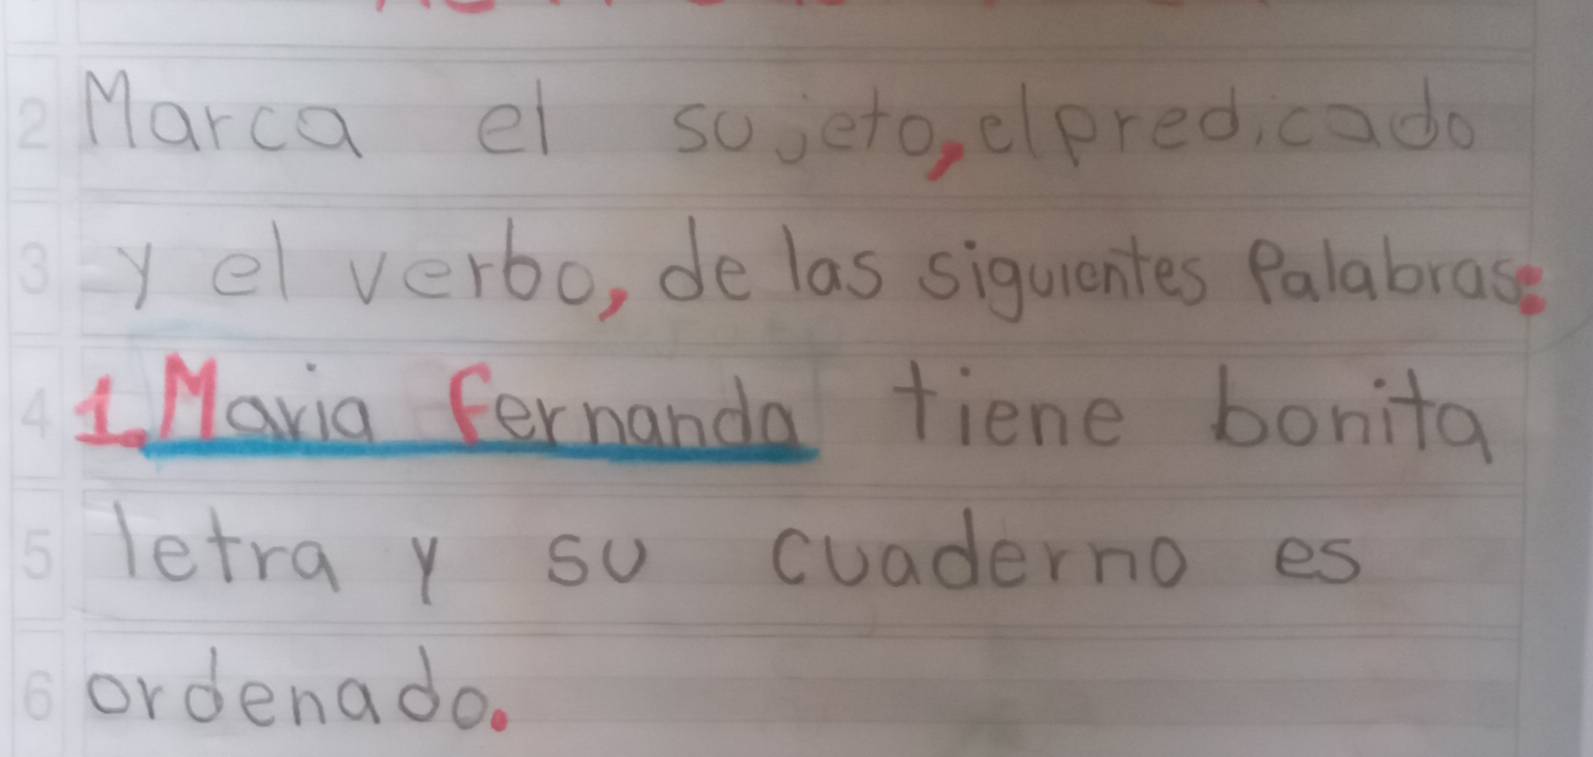 2 Marca el sujeto, el predicado
3 y el verbo, de las siguientes Palabras:
4 1. Maria fernanda tiene bonita
5 letra y su cuaderno es
6 ordenado.